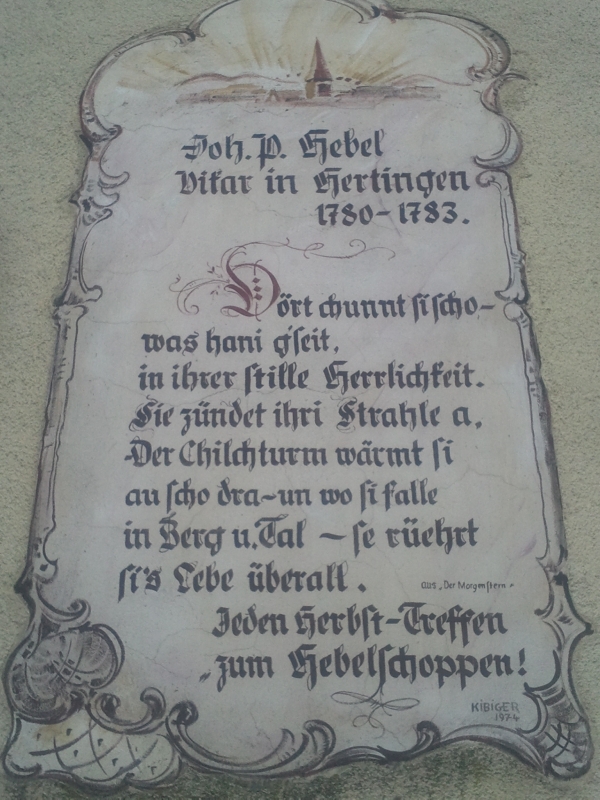 Joh. P. Hebel
Vikar in Hertingen
1780-1783.
Dört chunnt si scho-
was hani g'seit,
in ihrer stille Herrlichkeit.
Sie zündet ihri Strahle a,
Der Chilchturm wärmt si
au scho dra-un wo si falle
in Berg u. Tal - se rüehrt
si's Lebe überall.
aus "Der Morgenstern"
Jeden Herbst-Treffen
zum Hebelschoppen!
KIBIGER
1974